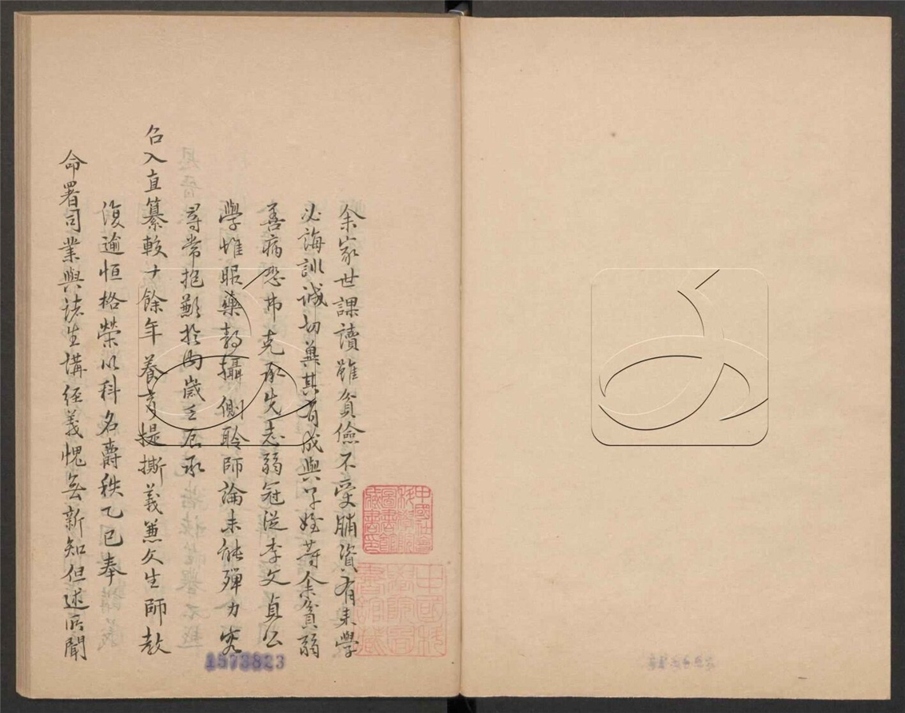 余家世課讀雖貧儉不受脯資有來學
必誨訓誠切冀其有成與子姪等余貧弱
善病恐弗克承先志弱冠從李文貞公
學惟眠藥靜攝側聆師論未能殫力宏
尋常抱歉於內歲壬辰承
召入直纂較十餘年養育提撕義兼父生師教
復逾恒格榮以科名爵秩乙巳奉
命署司業與諸生講經義愧無新知但述所聞
1573823